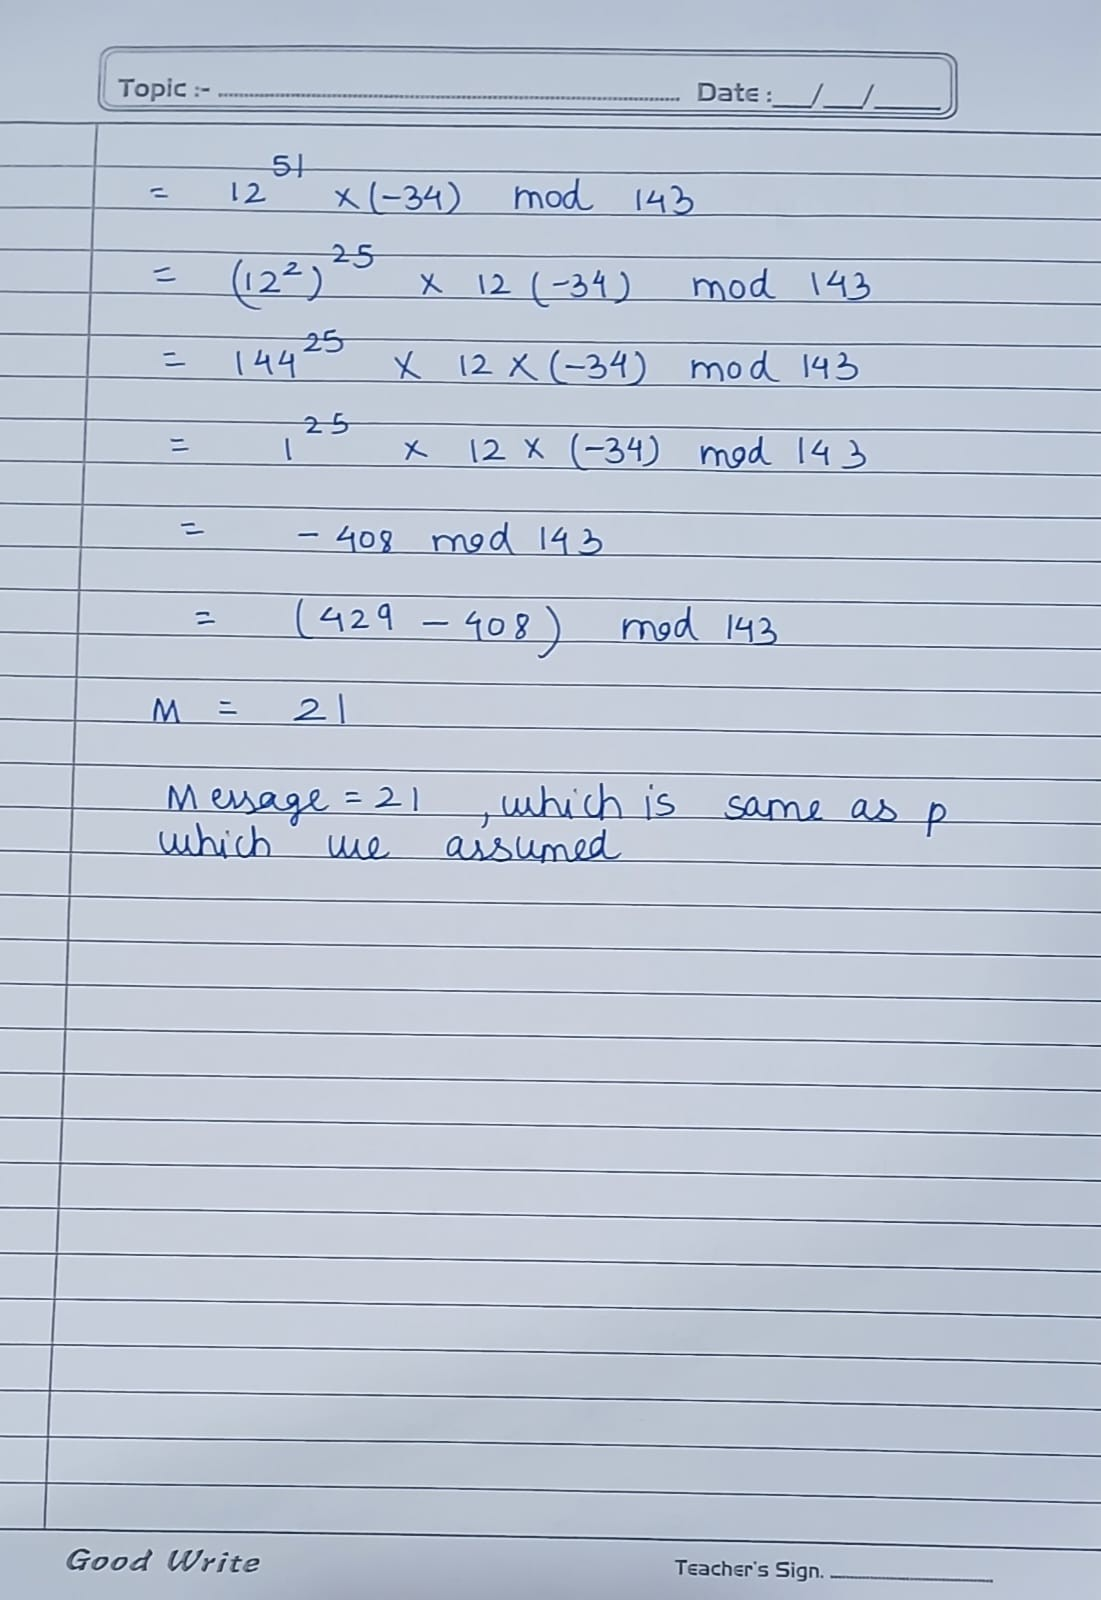 Topic :- Date : __/__/____
= 12^51 × (-34) mod 143
= (12²)^25 × 12 (-34) mod 143
= 144^25 × 12 × (-34) mod 143
= 1^25 × 12 × (-34) mod 143
= - 408 mod 143
= (429 - 408) mod 143
M = 21
Message = 21 , which is same as p
which we assumed
Good Write Teacher's Sign.